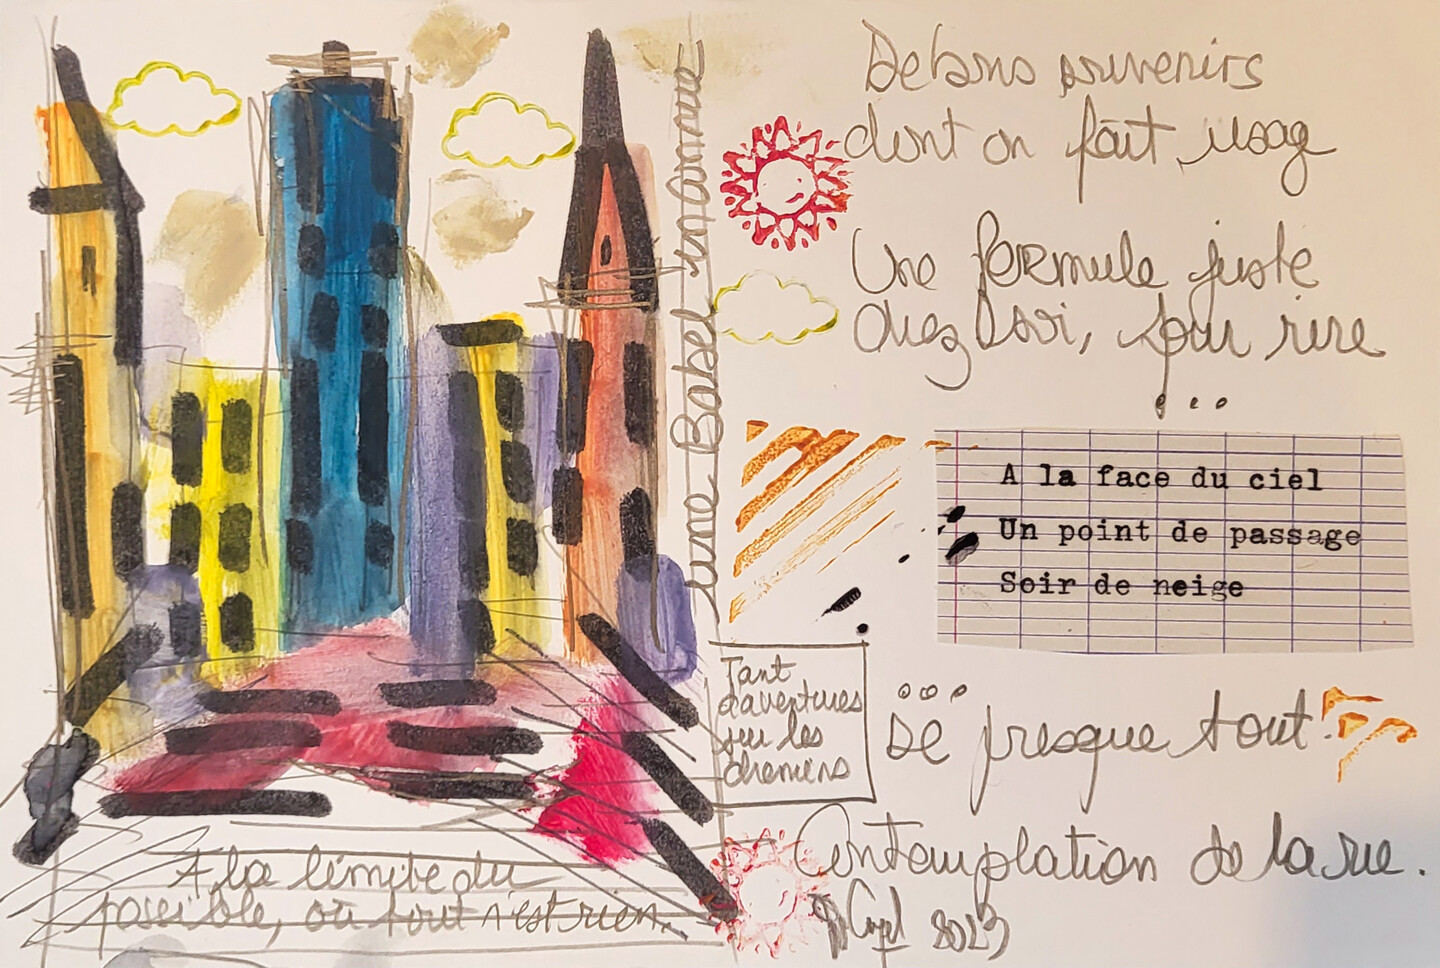 De bons souvenirs
dont on fait usage
Une formule juste
chez soi, pour rire
...
A la face du ciel
Un point de passage
Soir de neige
Tant
d'aventures
sur les
chemins
... de presque tout.
Contemplation de la rue.
2023
une Babel
A la limite du
possible, où tout n'est rien.